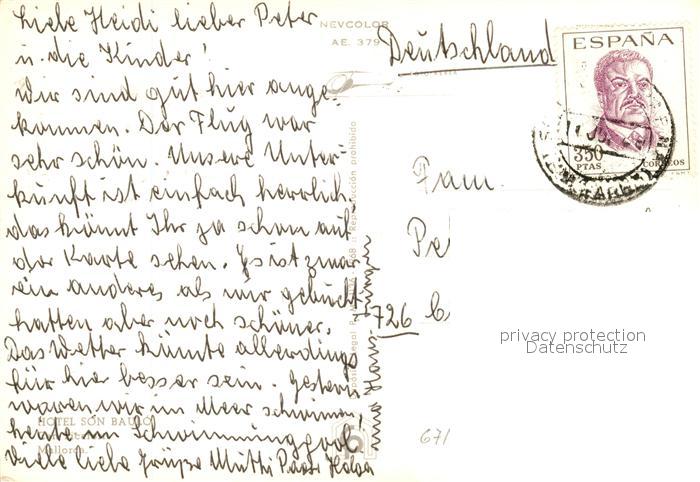 Liebe Heidi lieber Peter
u. die Kinder!
Wir sind gut hier ange-
kommen. Der Flug war
sehr schön. Unsere Unter-
kunft ist einfach herrlich,
das könnt Ihr ja schon auf
der Karte sehen. Es ist zwar
ein anderes als wir gebucht
hatten aber noch schöner.
Das Wetter könnte allerdings
für hier besser sein. Gestern
waren wir im Meer schwimmen,
heute im Schwimmingpool.
Viele liebe Grüße Mutti
HOTEL SON BAULO
Mallorca
NEVCOLOR
AE. 379
Reproducción prohibida
Deutschland
ESPAÑA
350
PTAS
CORREOS
Fam.
Pe
726
privacy protection
Datenschutz
671